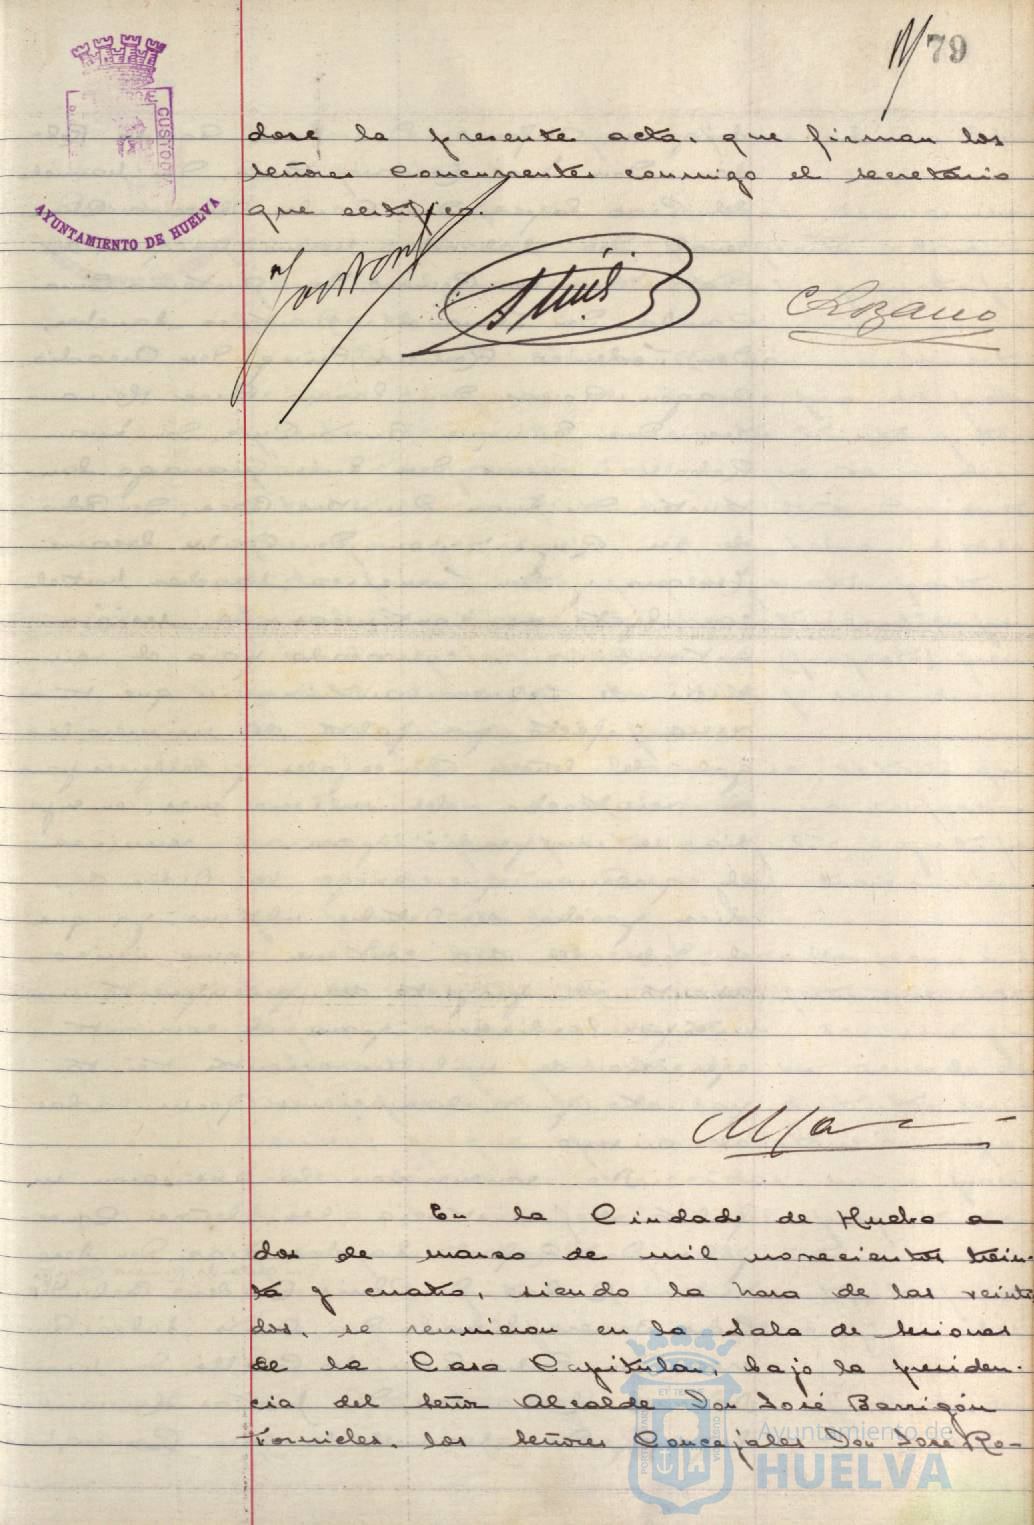 79
CUSTODIA
AYUNTAMIENTO DE HUELVA
dose la presente acta, que firman los
señores concurrentes conmigo el secretario
que certifico.
CLozano
En la Ciudad de Huelva a
dos de marzo de mil novecientos trein-
ta y cuatro, siendo la hora de las veinte
dos, se reunieron en la Sala de Sesiones
de la Casa Capitular, bajo la presiden-
cia del señor Alcalde Don José Barrigón
Fornieles, los señores Concejales Don José Re-
Ayuntamiento de
HUELVA